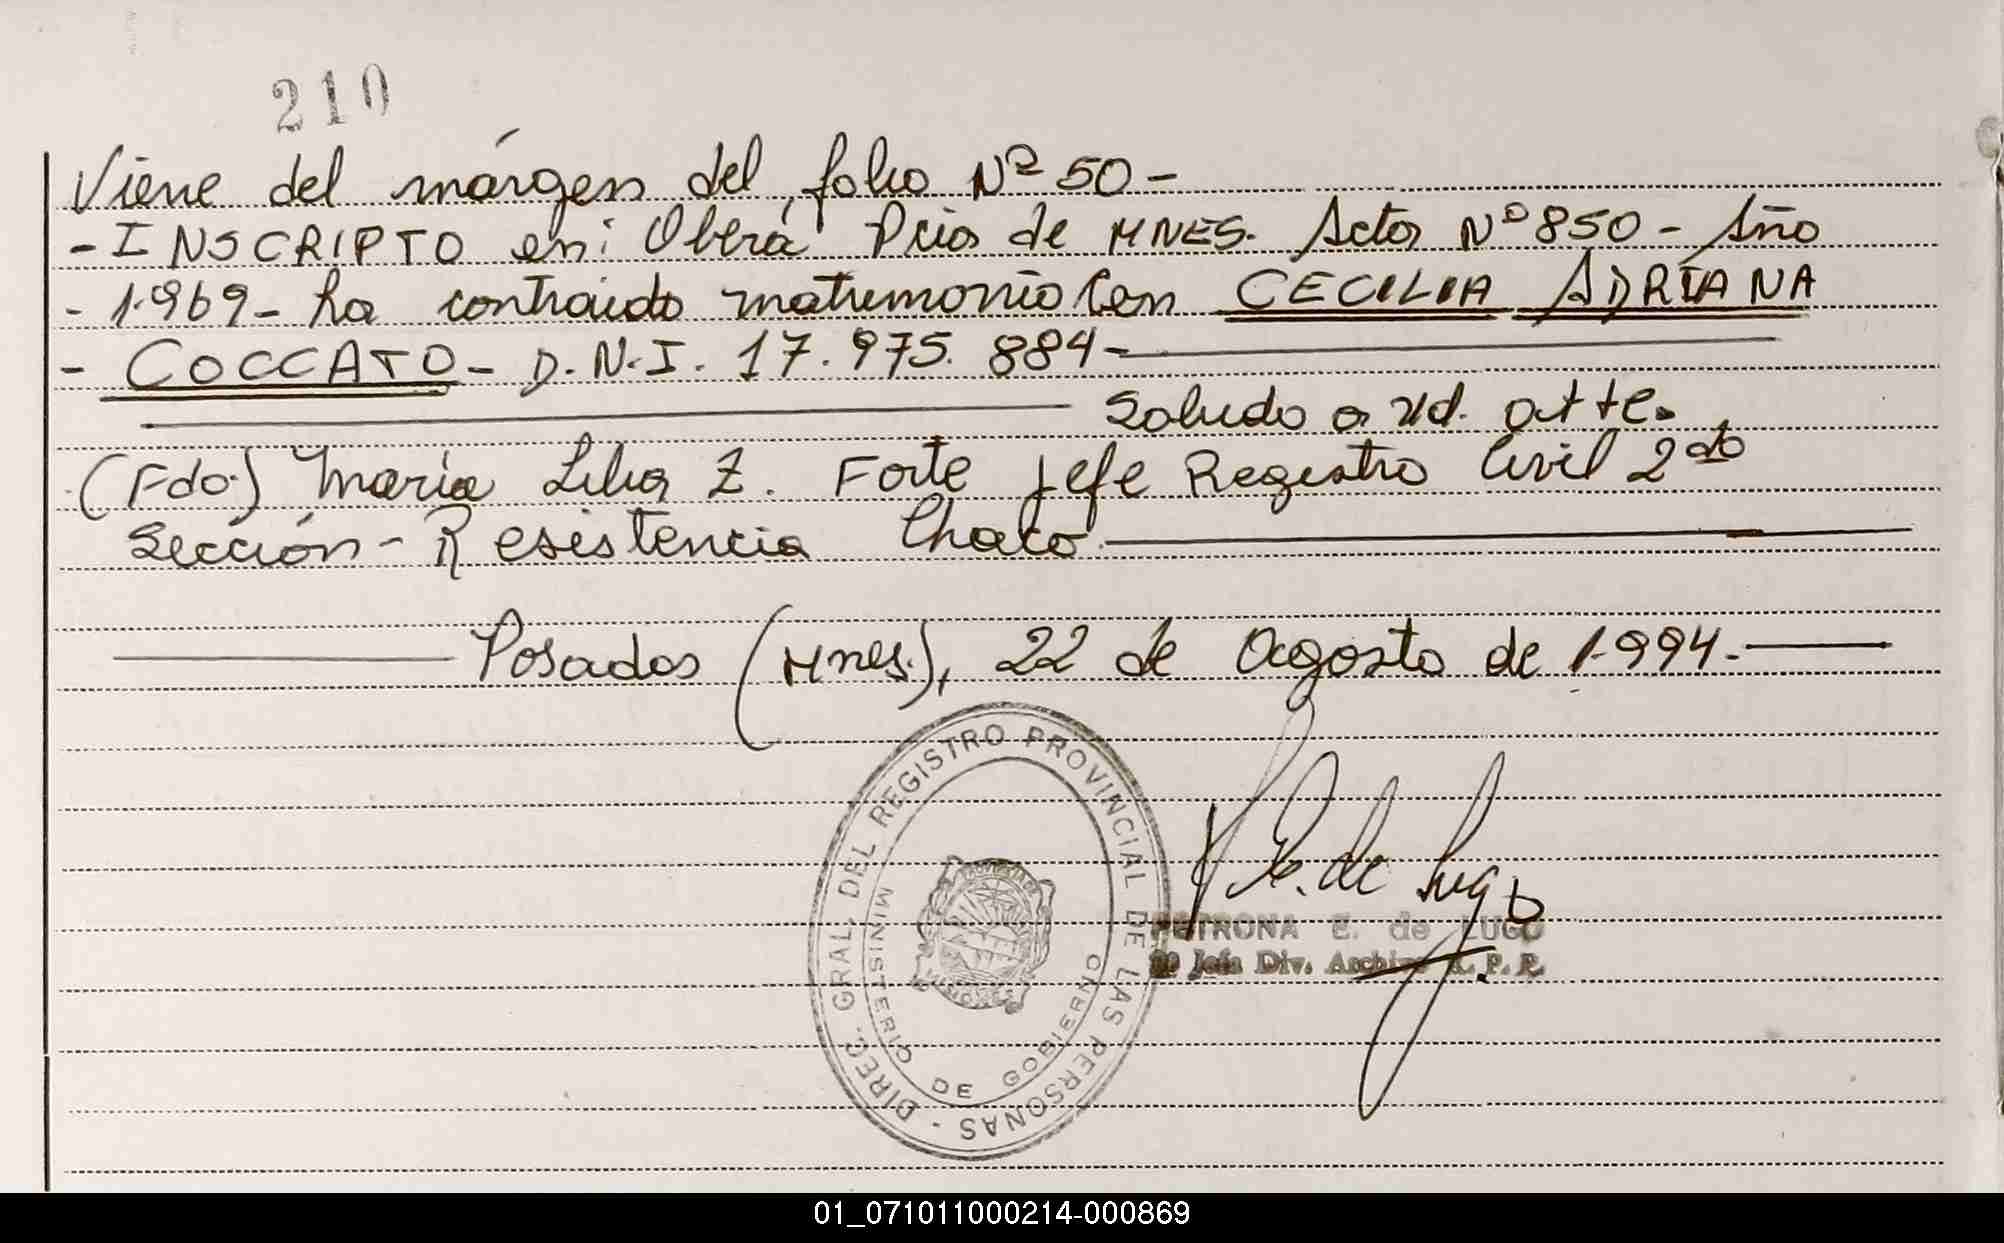 210
Viene del márgen del folio Nº 50-
- INSCRIPTO en: Oberá Pcia de MNES. Acta Nº 850 - Año
- 1.969 - ha contraido matrimonio con CECILIA ADRIANA
- COCCATO - D.N.I. 17.975.884 -
Saludo a Ud. atte.
(Fdo.) María Lilia Z. Forte Jefe Registro Civil 2da
Sección - Resistencia Chaco.
Posadas (Mnes.), 22 de Agosto de 1.994.-
DIREC. GRAL. DEL REGISTRO PROVINCIAL DE LAS PERSONAS -
MINISTERIO DE GOBIERNO
MISIONES
P. E. de Lugo
PETRONA E. de LUGO
Jefa Div. Archivo R. P. P.
01_071011000214-000869